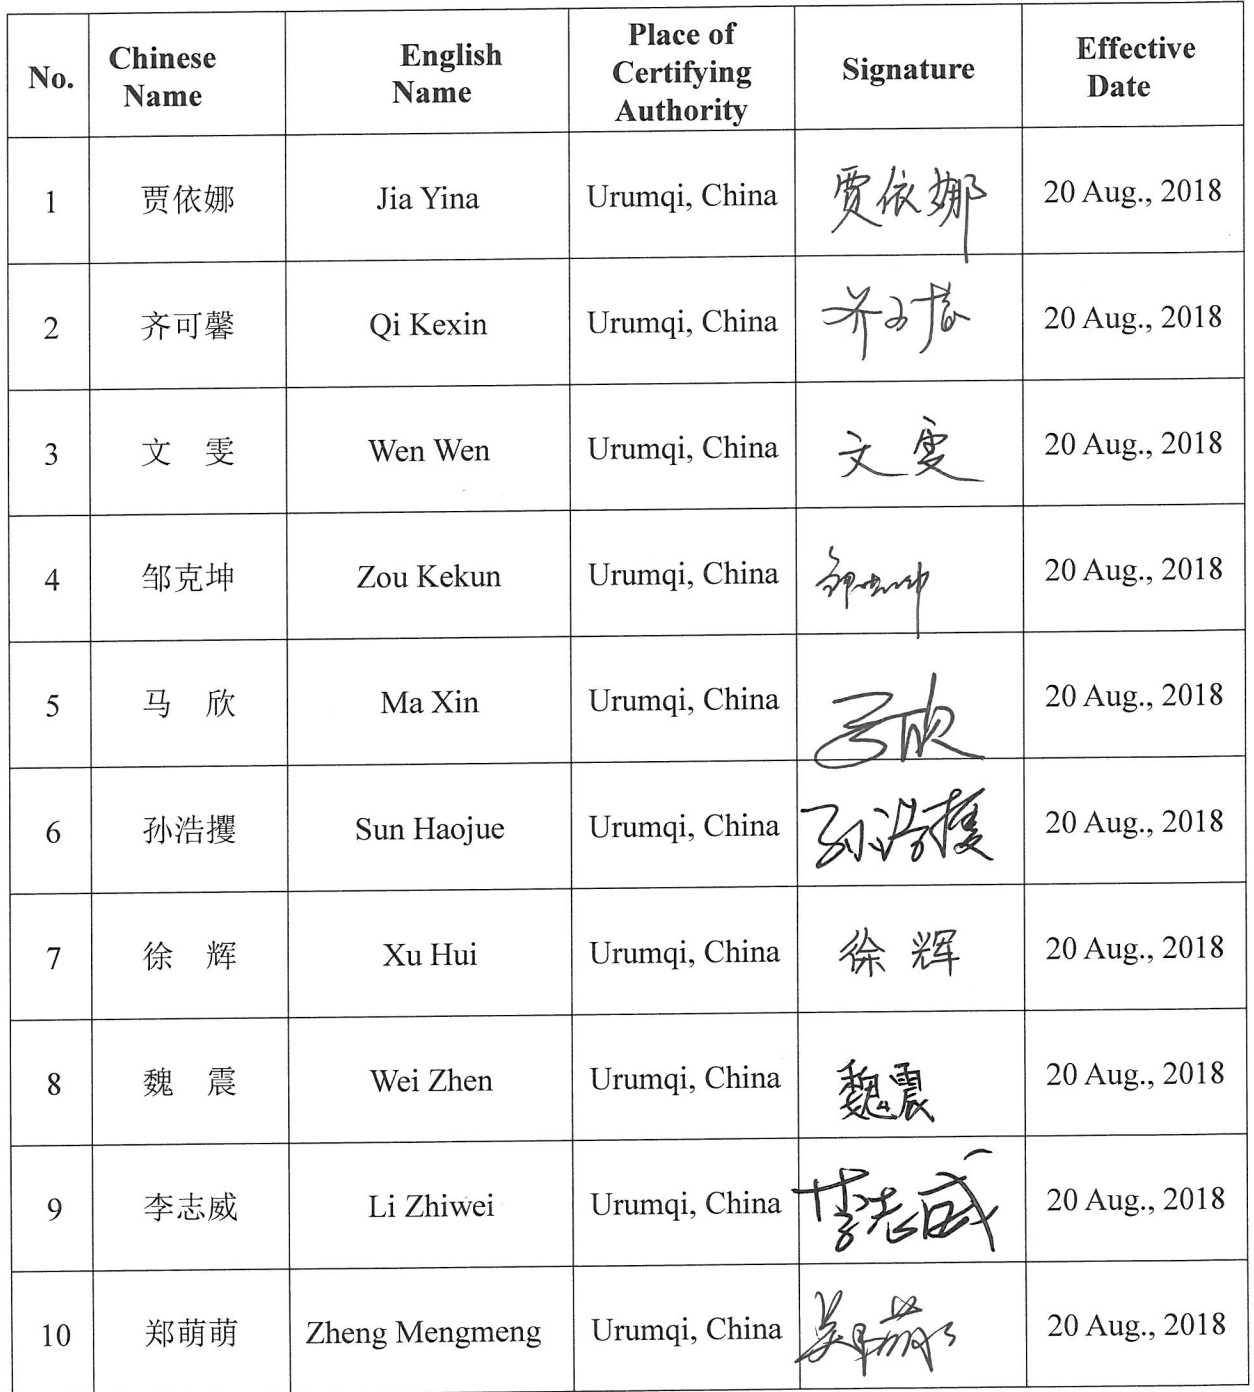 No.
Chinese
Name
English
Name
Place of
Certifying
Authority
Signature
Effective
Date
1
贾依娜
Jia Yina
Urumqi, China
贾依娜
20 Aug., 2018
2
齐可馨
Qi Kexin
Urumqi, China
齐可馨
20 Aug., 2018
3
文 雯
Wen Wen
Urumqi, China
文雯
20 Aug., 2018
4
邹克坤
Zou Kekun
Urumqi, China
邹克坤
20 Aug., 2018
5
马 欣
Ma Xin
Urumqi, China
马欣
20 Aug., 2018
6
孙浩攫
Sun Haojue
Urumqi, China
孙浩攫
20 Aug., 2018
7
徐 辉
Xu Hui
Urumqi, China
徐辉
20 Aug., 2018
8
魏 震
Wei Zhen
Urumqi, China
魏震
20 Aug., 2018
9
李志威
Li Zhiwei
Urumqi, China
李志威
20 Aug., 2018
10
郑萌萌
Zheng Mengmeng
Urumqi, China
郑萌萌
20 Aug., 2018